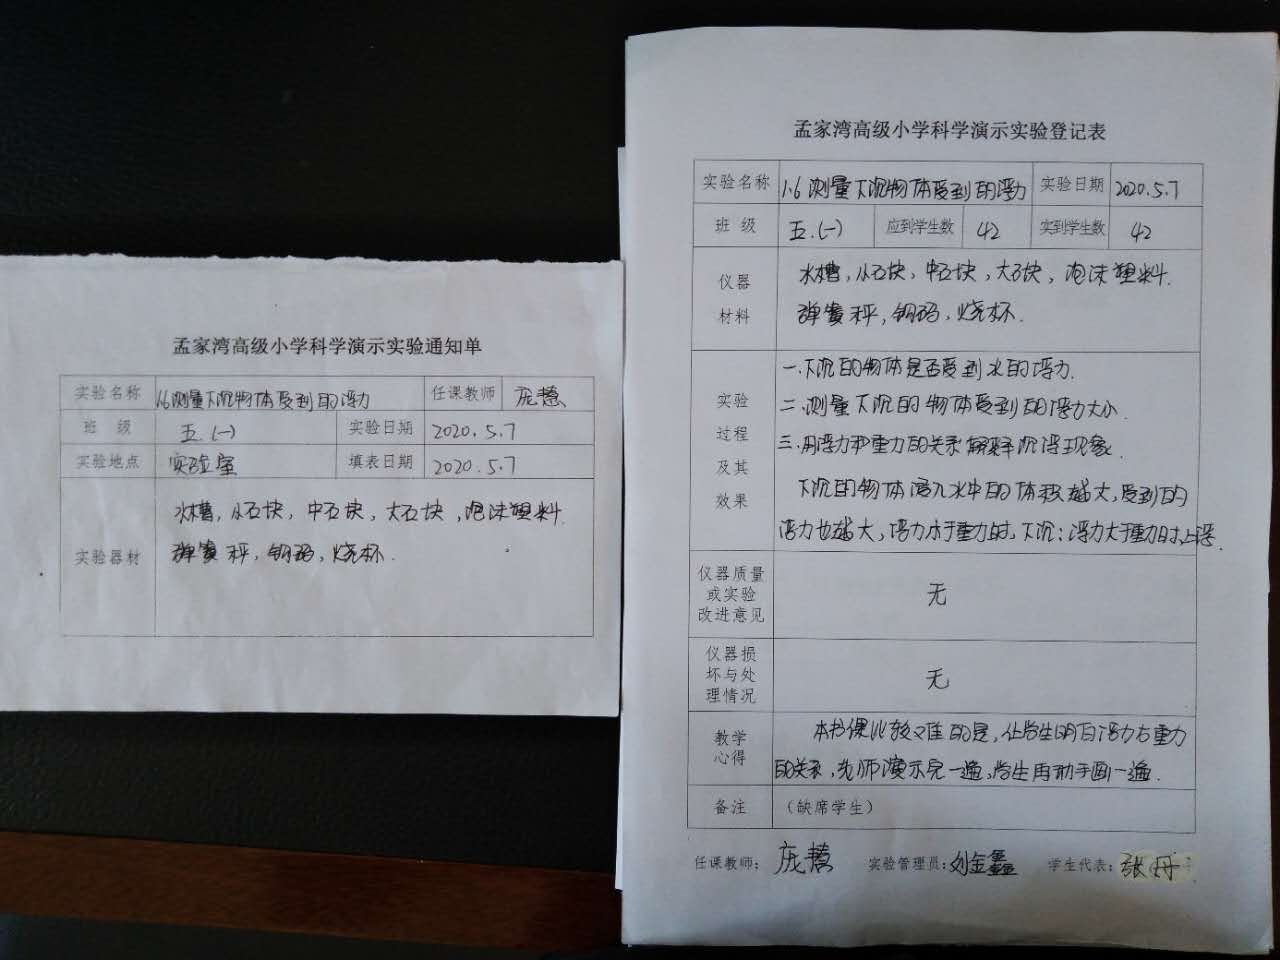 孟家湾高级小学科学演示实验通知单
实验名称 1.6测量下沉物体受到的浮力 任课教师 庞慧
班 级 五.(一) 实验日期 2020.5.7
实验地点 实验室 填表日期 2020.5.7
实验器材
水槽,小石块,中石块,大石块,泡沫塑料.
弹簧秤,钩码,烧杯.
孟家湾高级小学科学演示实验登记表
实验名称 1.6测量下沉物体受到的浮力 实验日期 2020.5.7
班 级 五.(一) 应到学生数 42 实到学生数 42
仪器
材料
水槽,小石块,中石块,大石块,泡沫塑料.
弹簧秤,钩码,烧杯.
实验
过程
及其
效果
一.下沉的物体是否受到水的浮力.
二.测量下沉的物体受到的浮力大小.
三.用浮力和重力的关系解释沉浮现象.
下沉的物体浸入水中的体积越大,受到的
浮力也越大,浮力小于重力时,下沉;浮力大于重力时,上浮.
仪器质量
或实验
改进意见
无
仪器损
坏与处
理情况
无
教学
心得
本节课比较难的是,让学生明白浮力与重力
的关系,老师演示完一遍,学生再动手画一遍.
备注 (缺席学生)
任课教师: 庞慧 实验管理员: 刘金鑫 学生代表: 张丹